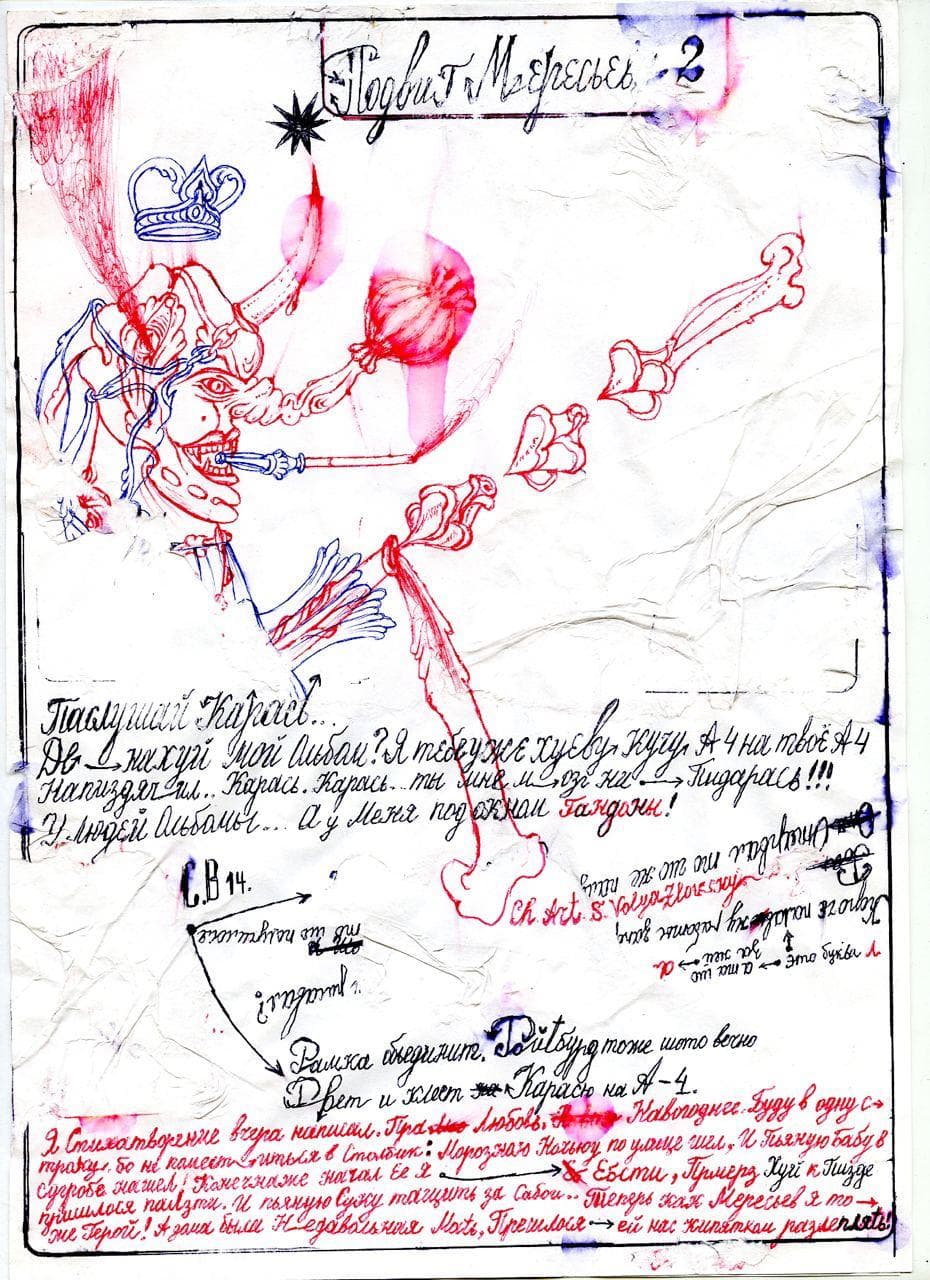 Подвиг Мересьева - 2
Паслушай Карась...
Где → нахуй мой Альбом? Я тебе уже хуеву Кучу А4 на твоё А4
Напиздячил.. Карась. Карась.. ты мне мозг не → Пидарась!!!
У людей Альбомы... А у Меня под окном Гандоны!
С.В 14.
Ch. Art. S. Volya Zlovesny
Короче
работы
л
а
получилося
рисовал?
Рамка объединит. Ройтбурд тоже шото вечно
Рвет и клеет Карасю на А-4.
Я Стихатворение вчера написал. Пра Любовь. Навогоднее. Буду в одну с→
траку, бо не поместиться в Столбик: Морозною Ночьью по улице шел, И Пьяную Бабу в
Сугробе нашел! Конечнаже начал Ее Я → Ебсти, Примерз Хуй к Пизде
пришлося палзти. И пьяную Суку тащить за Сабой.. Теперь как Мересьев я то→
же Герой! А дома была Недавольная Мать, Пришлося → ей нас кипятком разлеплять!